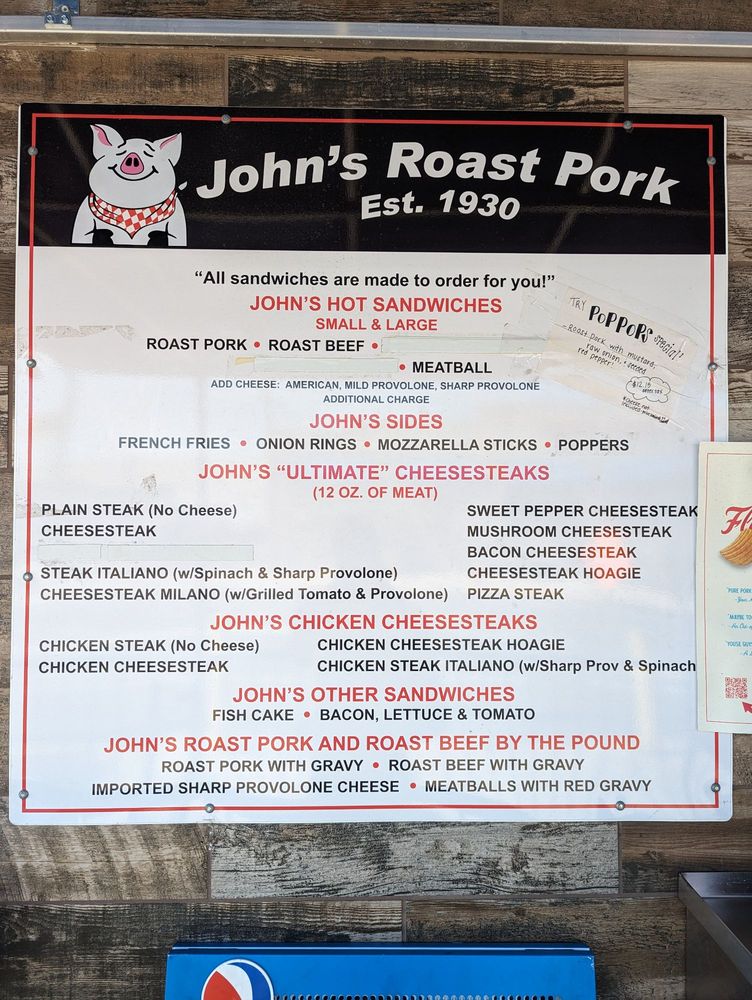 John's Roast Pork
Est. 1930
"All sandwiches are made to order for you!"
JOHN'S HOT SANDWICHES
SMALL & LARGE
ROAST PORK • ROAST BEEF •
• MEATBALL
ADD CHEESE: AMERICAN, MILD PROVOLONE, SHARP PROVOLONE
ADDITIONAL CHARGE
TRY POPPOR'S special!
- Roast pork with mustard,
raw onion, + seeded
red pepper!
$12.15
JOHN'S SIDES
FRENCH FRIES • ONION RINGS • MOZZARELLA STICKS • POPPERS
JOHN'S "ULTIMATE" CHEESESTEAKS
(12 OZ. OF MEAT)
PLAIN STEAK (No Cheese)
CHEESESTEAK
STEAK ITALIANO (w/Spinach & Sharp Provolone)
CHEESESTEAK MILANO (w/Grilled Tomato & Provolone)
SWEET PEPPER CHEESESTEAK
MUSHROOM CHEESESTEAK
BACON CHEESESTEAK
CHEESESTEAK HOAGIE
PIZZA STEAK
JOHN'S CHICKEN CHEESESTEAKS
CHICKEN STEAK (No Cheese)
CHICKEN CHEESESTEAK
CHICKEN CHEESESTEAK HOAGIE
CHICKEN STEAK ITALIANO (w/Sharp Prov & Spinach
JOHN'S OTHER SANDWICHES
FISH CAKE • BACON, LETTUCE & TOMATO
JOHN'S ROAST PORK AND ROAST BEEF BY THE POUND
ROAST PORK WITH GRAVY • ROAST BEEF WITH GRAVY
IMPORTED SHARP PROVOLONE CHEESE • MEATBALLS WITH RED GRAVY
"PURE PORK